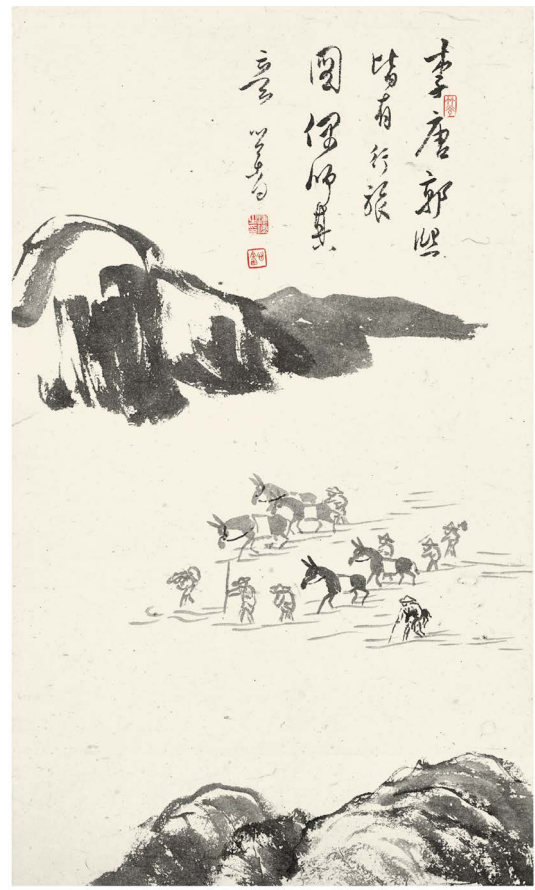 李唐郭熙
皆有行旅
圖偶師其
意 心畬